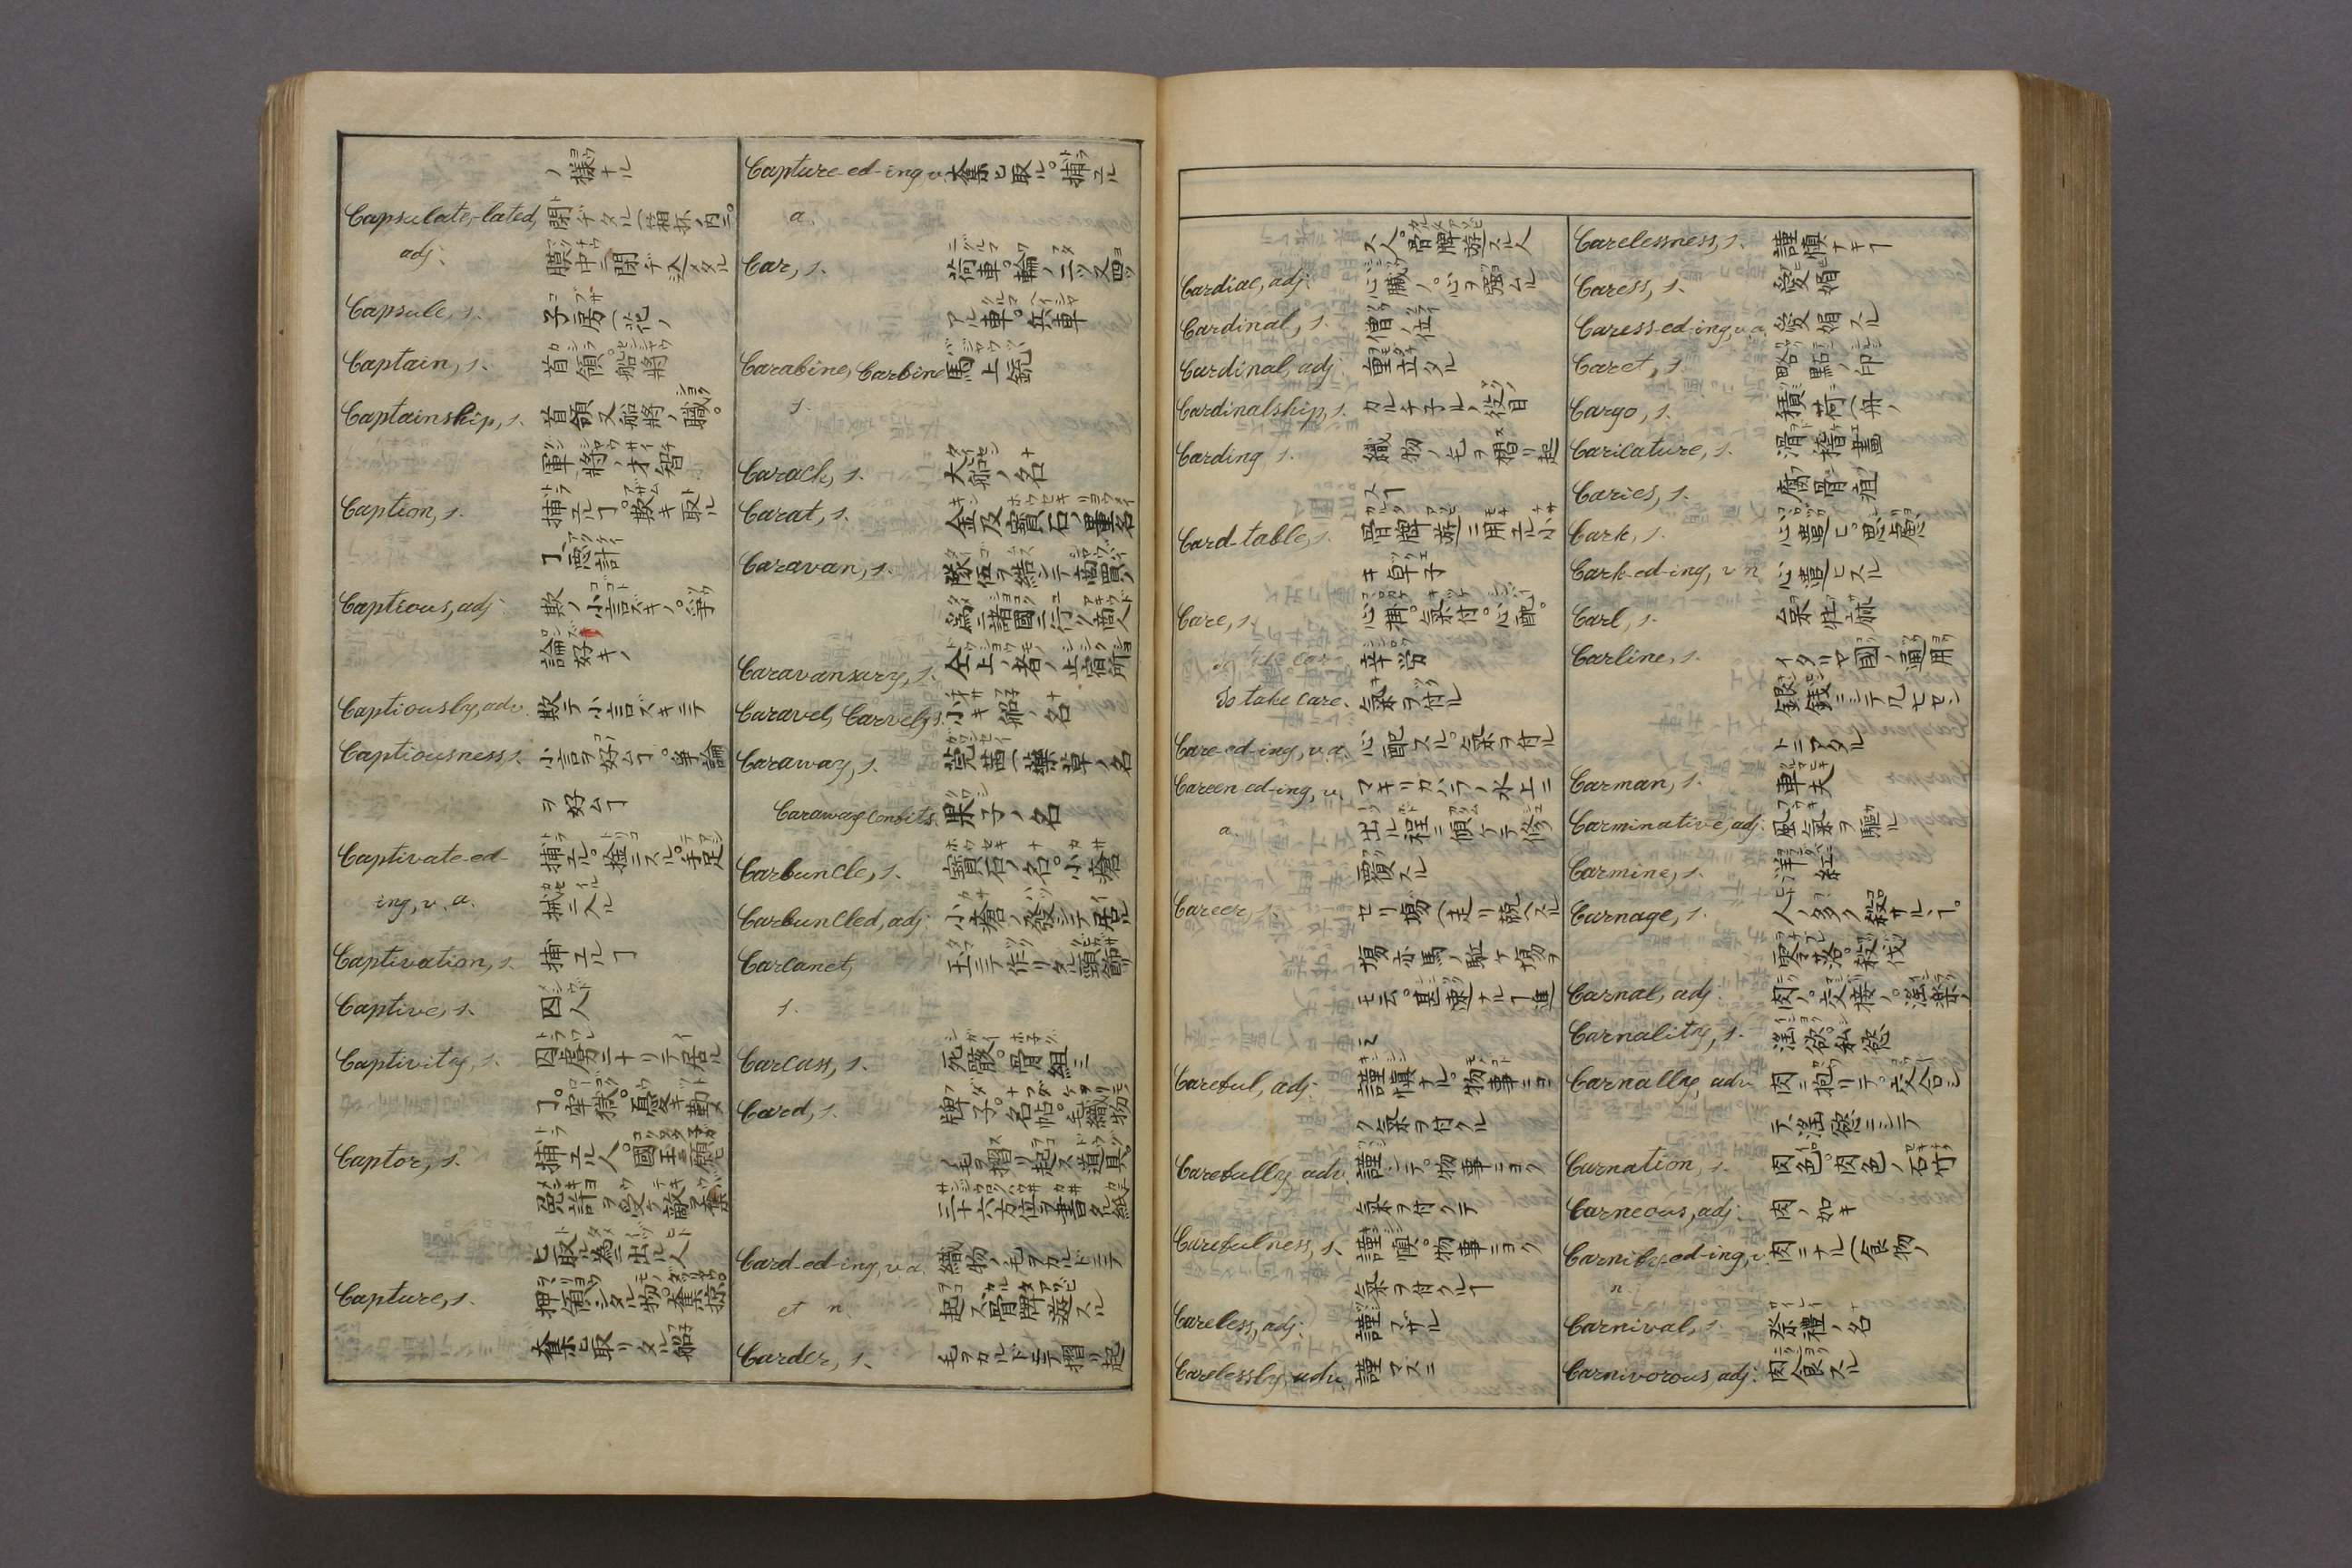 ノ様ナル
Capsulate,-lated, 閉ヂタル(箱抔ノ内ニ。
adj. 膜中ニ閉ヂ込メタル
Capsule, s. 子房(花ノ
Captain, s. 首領。船將
Captainship, s. 首領又船將ノ職。
軍將ノ才智
Caption, s. 捕エルヿ。欺キ取ル
ヿ。惡計
Captious, adj. 欺ノ。小言ズキノ。爭
論好キノ
Captiously, adv. 欺テ。小言ズキニテ
Captiousness, s. 小言ヲ好ムヿ。爭論
ヲ好ムヿ
Captivate-ed- 捕エル。擒ニスル。手足
ing, v. a. 械ニ入ル
Captivation, s. 捕エルヿ
Captive, s. 囚人
Captivity, s. 囚虜ニナリテ居ル
ヿ。牢獄。
Captor, s. 捕エル人。國王ニ願ヒ
免許ヲ受ケ敵ヲ奪
ヒ取ル為ニ出ル人
Capture, s. 押領シタル物。
奪ヒ取リタル船
Capture-ed-ing, v. 奪ヒ取ル。捕エル
a.
Car, s. 荷車。輪ノ二ツ又四ツ
アル車。兵車
Carabine, Carbine 馬上銃
s.
Carack, s. 大船ノ名
Carat, s. 金及寶石ノ量名
Caravan, s. 隊伍ヲ結ンデ商買ノ
為ニ諸國ニ行ク商人
Caravansary, s. 仝上ノ者ノ止宿所
Caravel, Carvel, s. 小キ船ノ名
Caraway, s. 茴(藥草ノ名
Caraway-Conbits 果子ノ名
Carbuncle, s. 寶石ノ名。小瘡
Carbuncled, adj. 小瘡ノ發シテ居ル
Carcanet, 玉ニテ作リタル頸飾リ
s.
Carcass, s. 死骸。骨組ミ
Card, s. 牌子。名帖。毛織物
ノ毛ヲ摺リ起ス道具。
三十六方位ヲ書タル紙
Card-ed-ing, v. a. 織物ノ毛ヲカルドニテ
et n. 起ス。骨牌遊スル
Carder, s. 毛ヲカルドニテ摺リ起
ス人。骨牌遊スル人
Cardiac, adj. 心臟ノ。心ヲ强ムル
Cardinal, s. 僧ノ位
Cardinal, adj. 重立タル
Cardinalship, s. カルヂナルノ役目
Carding, s. 織物ノ毛ヲ摺リ起
スヿ
Card-table, s. 骨牌遊ニ用エル小サ
キ卓子
Care, s. 心痛。氣付。心配。
辛勞
To take care. 氣ヲ付ル
Care-ed-ing, v. a. 心配スル。氣ヲ付ル
Careen-ed-ing, v. マキリカハラノ水上ニ
a. 出ル程ニ傾ケテ修
覆スル
Career, s. セリ塲(走リ競スル
塲亦馬ノ駈ケ塲ヲ
モ云。甚速ナルヿ。進
ミ
Careful, adj. 謹愼ナル。物事ニヨ
ク氣ヲ付クル
Carefully, adv. 謹ンデ。物事ニヨク
氣ヲ付ケテ
Carefulness, s. 謹愼。物事ニヨク
氣ヲ付クルヿ
Careless, adj. 謹マザル
Carelessly, adv. 謹マズニ
Carelessness, s. 謹愼ナキヿ
Caress, s. 愛媚
Caress-ed-ing, v. a. 愛媚スル
Caret, s. 畧點ノ印
Cargo, s. 積荷(舟ノ
Caricature, s. 滑稽畫
Caries, s. 腐骨疽
Cark, s. 心遣ヒ。思慮
Cark-ed-ing, v. n. 心遣ヒスル
Carl, s.
Carline, s. イタリヤ國ノ通用
銀錢ニシテ凡七セン
トニアタル
Carman, s. 車夫
Carminative, adj. 風氣ヲ驅ル
Carmine, s. 洋紅
Carnage, s. 人ノ多ク殺サルヽヿ。
零落。殺伐
Carnal, adj. 肉ノ。交接ノ。淫樂ノ
Carnality, s. 淫欲。私慾
Carnally, adv. 肉ニ抱リテ。交合シ
テ。淫慾ニシテ
Carnation, s. 肉色。肉色ノ石竹
Carneous, adj. 肉ノ如キ
Carnify-ed-ing, v. 肉ニナル(食物ノ
n.
Carnival, s. 祭禮ノ名
Carnivorous, adj. 肉食スル